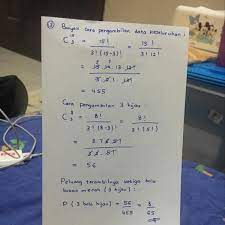 ② Banyak cara pengambilan data keseluruhan :
C 15 3 = 15! / 3! (15-3)! = 15! / 3! 12!
= 15 . 14 . 13 . 12! / 3 . 2 . 1 . 12!
= 455
Cara pengambilan 3 hijau :
C 8 3 = 8! / 3! (8-3)! = 8! / 3! (5!)
= 8 7 6 5! / 3 . 2 . 5!
= 56
Peluang terambilnya ketiga bola
bukan merah (3 hijau) :
P (3 bola hijau) = 56 / 455 = 8 / 65